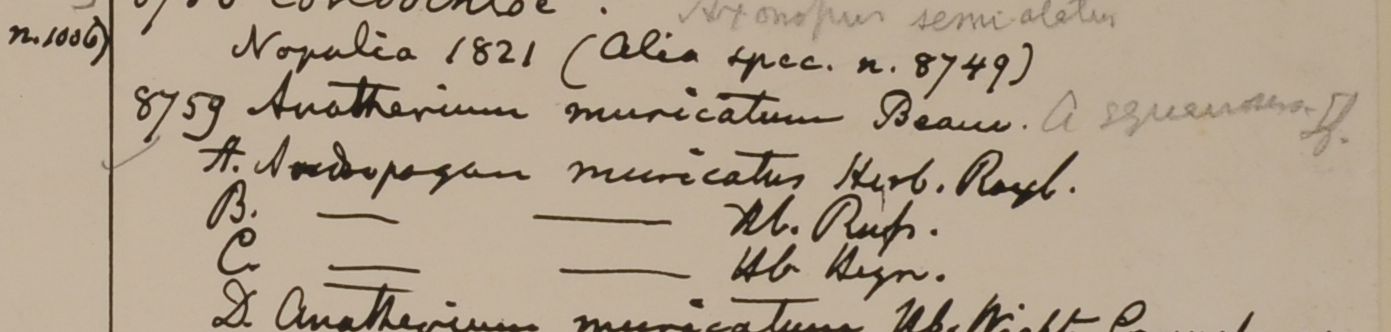 Axonopus semialatus
n. 1006) Nopalia 1821 (Alia spec. n. 8749)
8759 Anatherium muricatum Beauv. A squarrosus Lf.
A. Andropogon muricatus Herb. Roxb.
B. — — Hb. Russ.
C. — — Hb Heyn.
D. Anatherium muricatum Hb. Wight